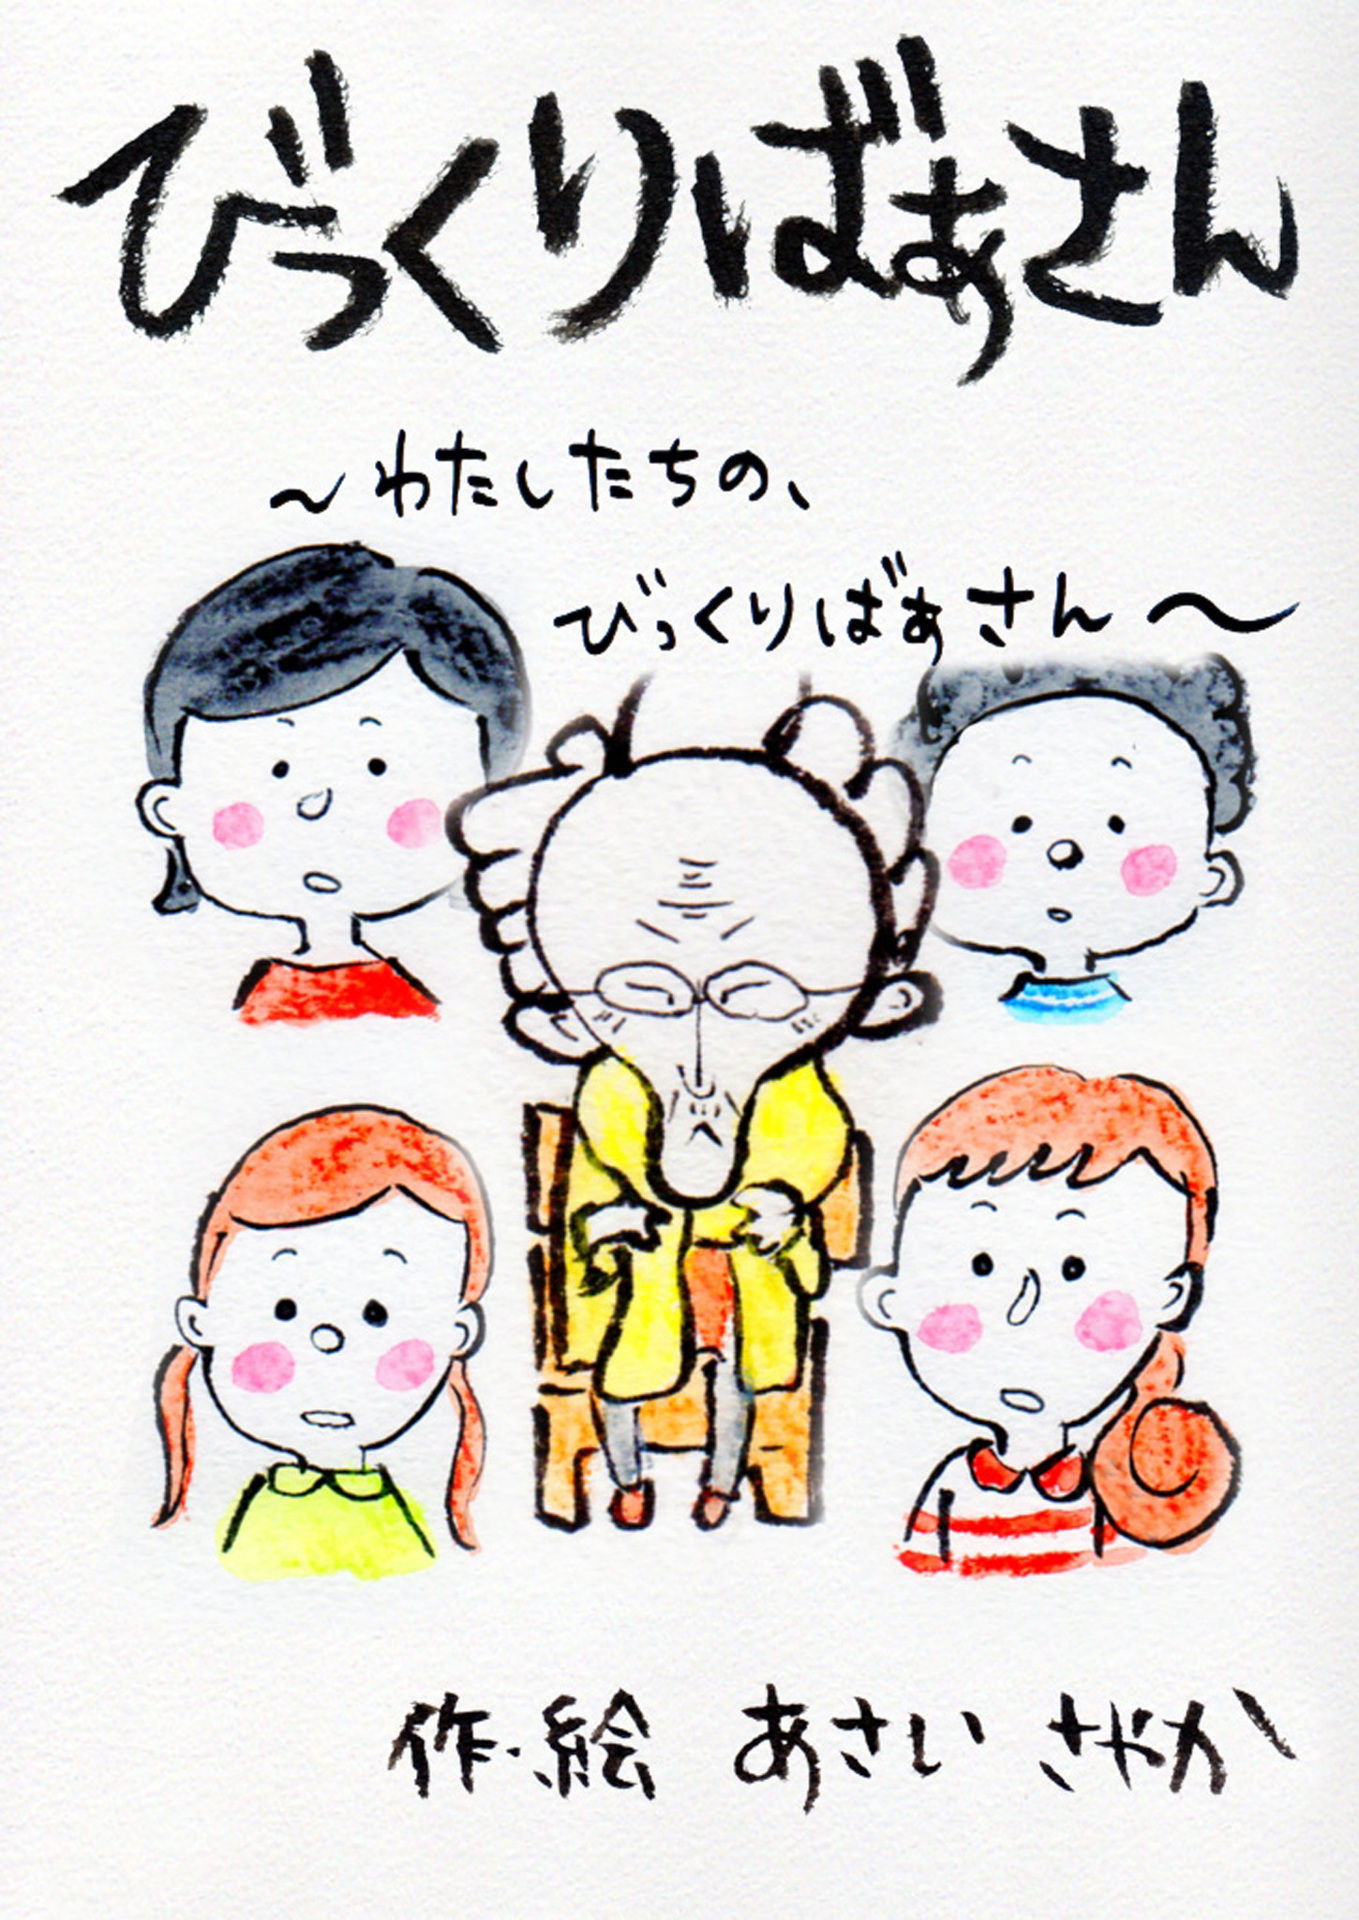 びっくりばぁさん
～わたしたちの、
びっくりばぁさん～
作・絵 あさい さやか